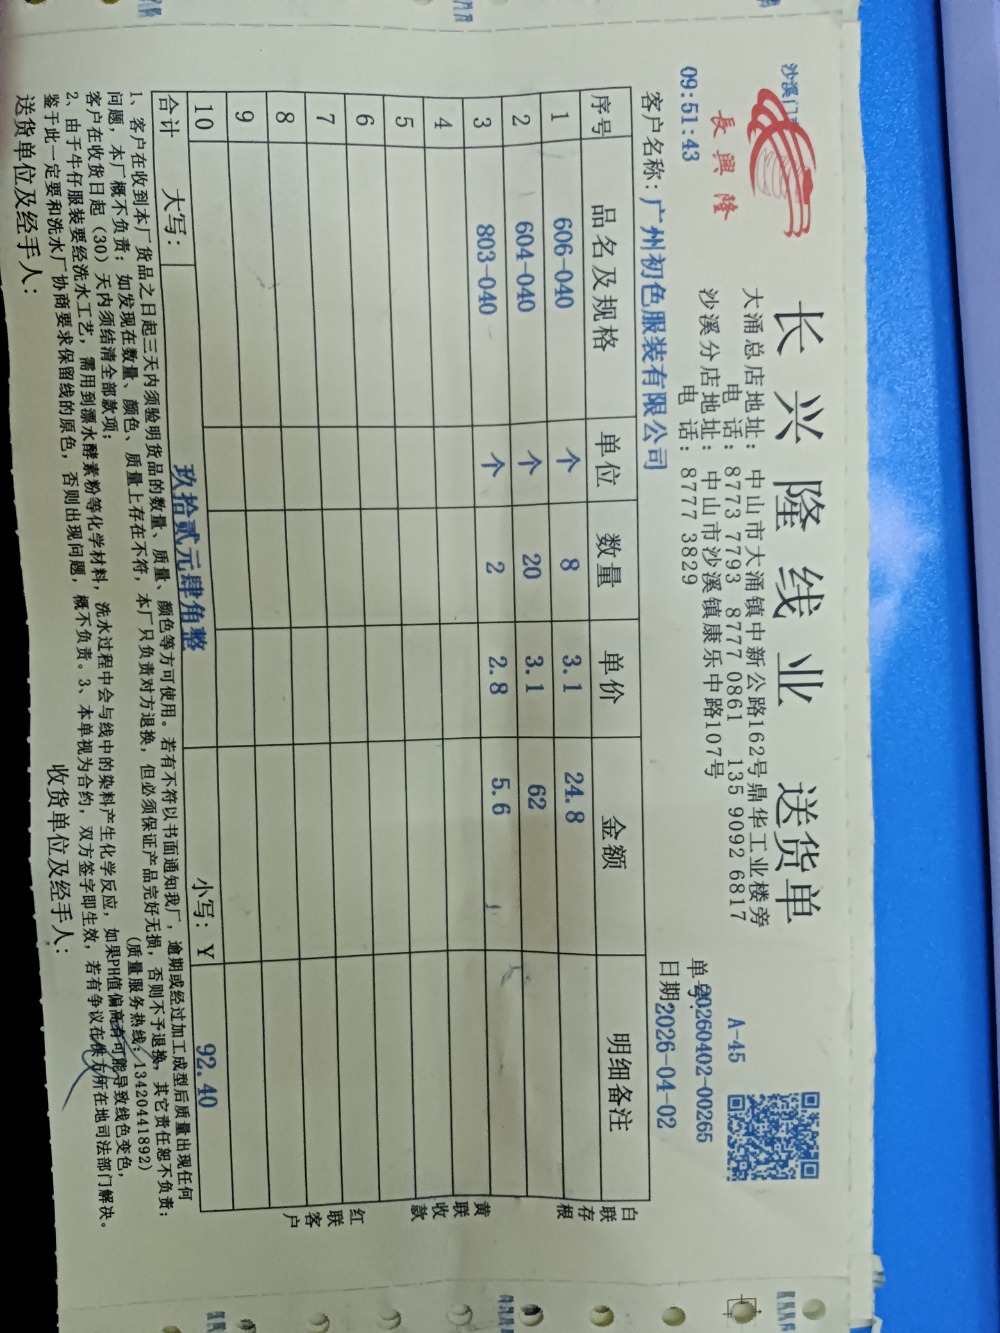 沙溪门
長興隆
长兴隆线业 送货单
A-45
大涌总店地址：中山市大涌镇中新公路162号鼎华工业楼旁
电 话：8773 7793 8777 0861 135 9092 6817
沙溪分店地址：中山市沙溪镇康乐中路107号
电 话：8777 3829
09:51:43
单号：20260402-00265
日期：2026-04-02
客户名称：广州初色服装有限公司
序号 品名及规格 单位 数量 单价 金额 明细备注
1 606-040 个 8 3.1 24.8
2 604-040 个 20 3.1 62
3 803-040 个 2 2.8 5.6
4
5
6
7
8
9
10
合计 大写：玖拾贰元肆角整 小写：Y 92.40
白联存根
黄联收款
红联客户
1、客户在收到本厂货品之日起三天内须验明货品的数量、质量、颜色等方可使用。若有不符以书面通知我厂，逾期或经过加工成型后质量出现任何
问题，本厂概不负责；如发现在数量、颜色、质量上存在不符，本厂只负责对方退换，但必须保证产品完好无损，否则不予退换，其它责任恕不负责；
客户在收货日起（30）天内须结清全部款项； （质量服务热线：13420441892）
2、由于牛仔服装要经洗水工艺，需用到漂水酵素粉等化学材料，洗水过程中会与线中的染料产生化学反应，如果PH值偏高有可能导致线色变色，
鉴于此一定要和洗水厂协商要求保留线的原色，否则出现问题，概不负责。3、本单视为合约，双方签字即生效，若有争议在供方所在地司法部门解决。
送货单位及经手人： 收货单位及经手人：